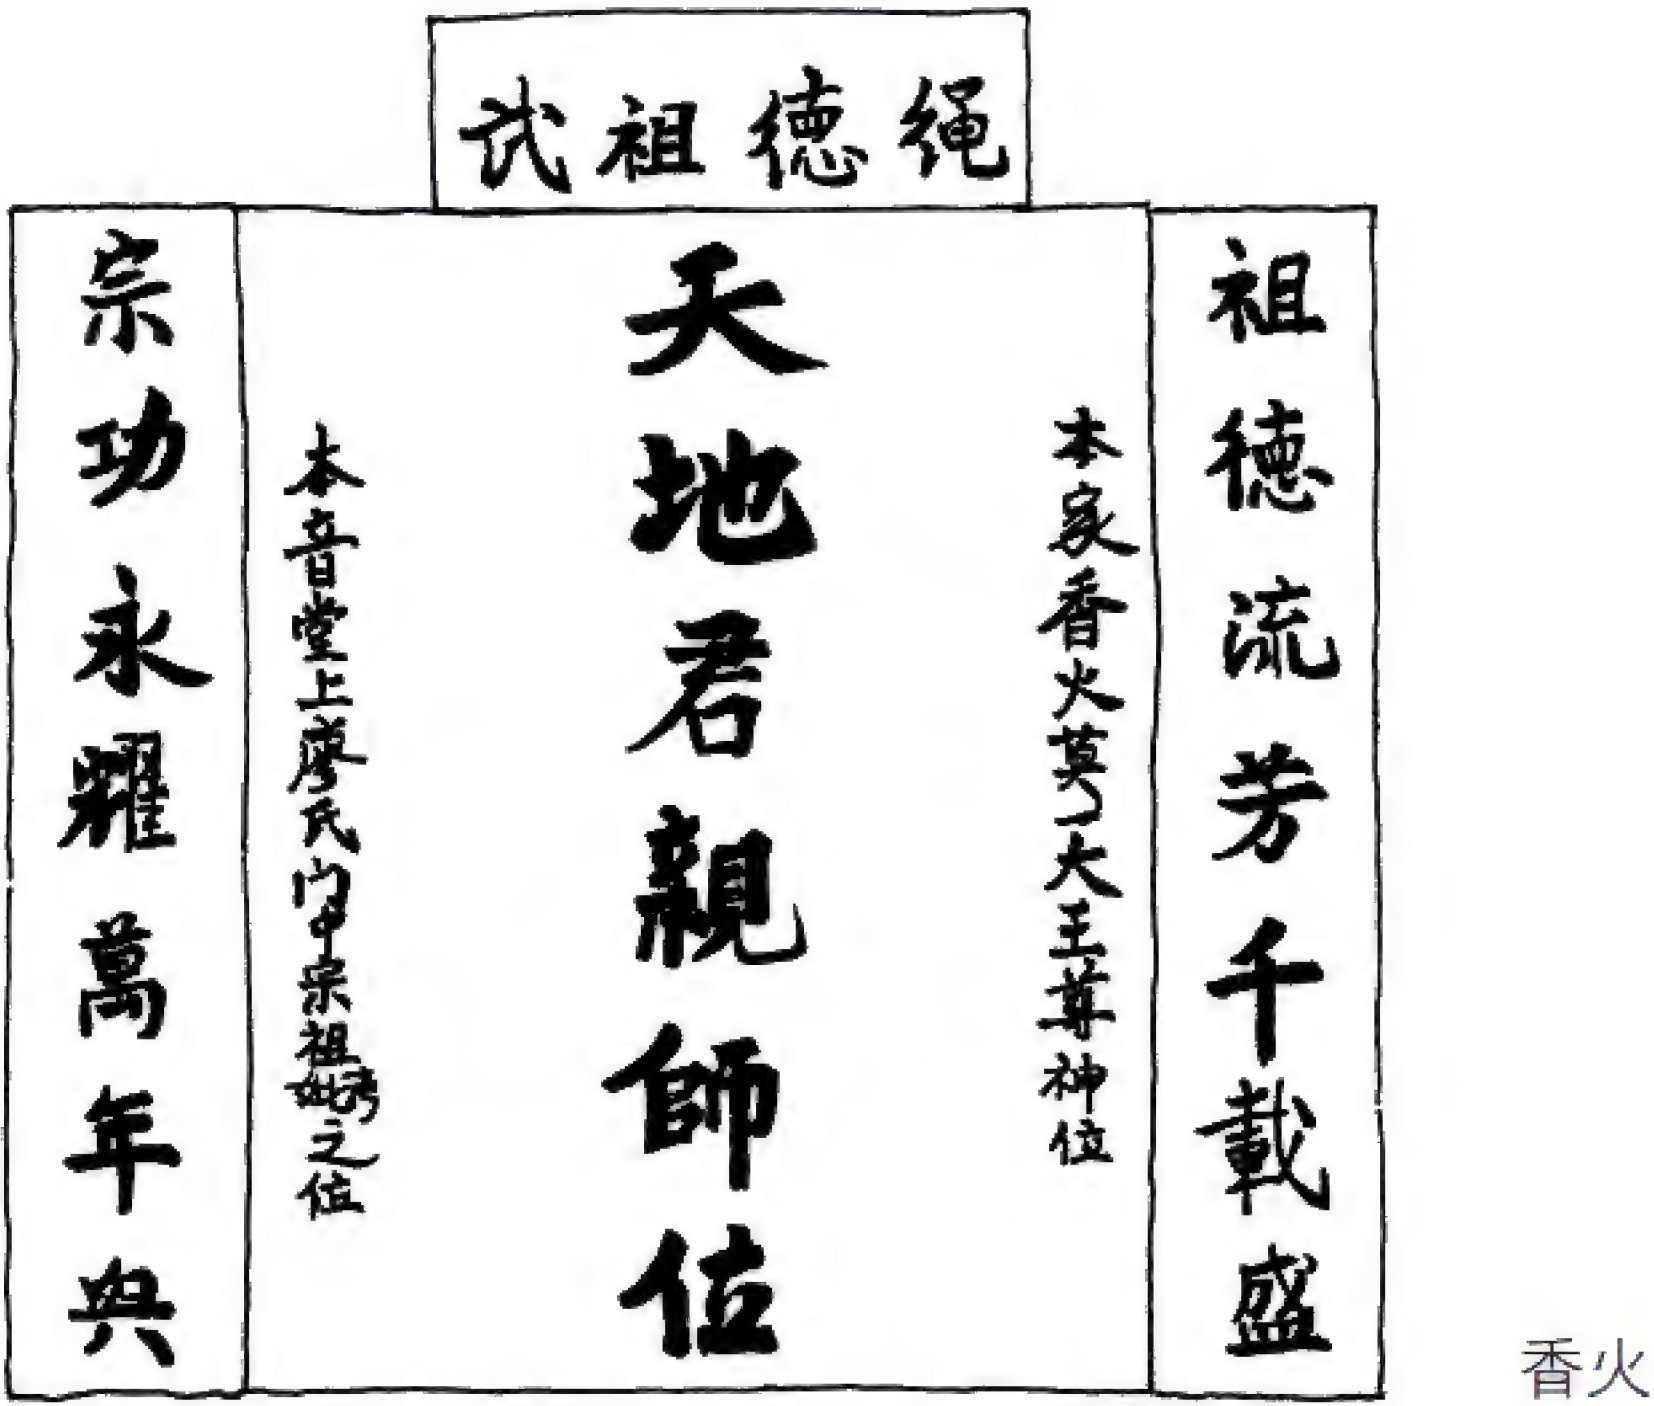 绳德祖武
祖德流芳千載盛
本家香火莫一大王尊神位
天地君親師位
本音堂上廖氏门中宗祖考妣之位
宗功永耀萬年興
香火